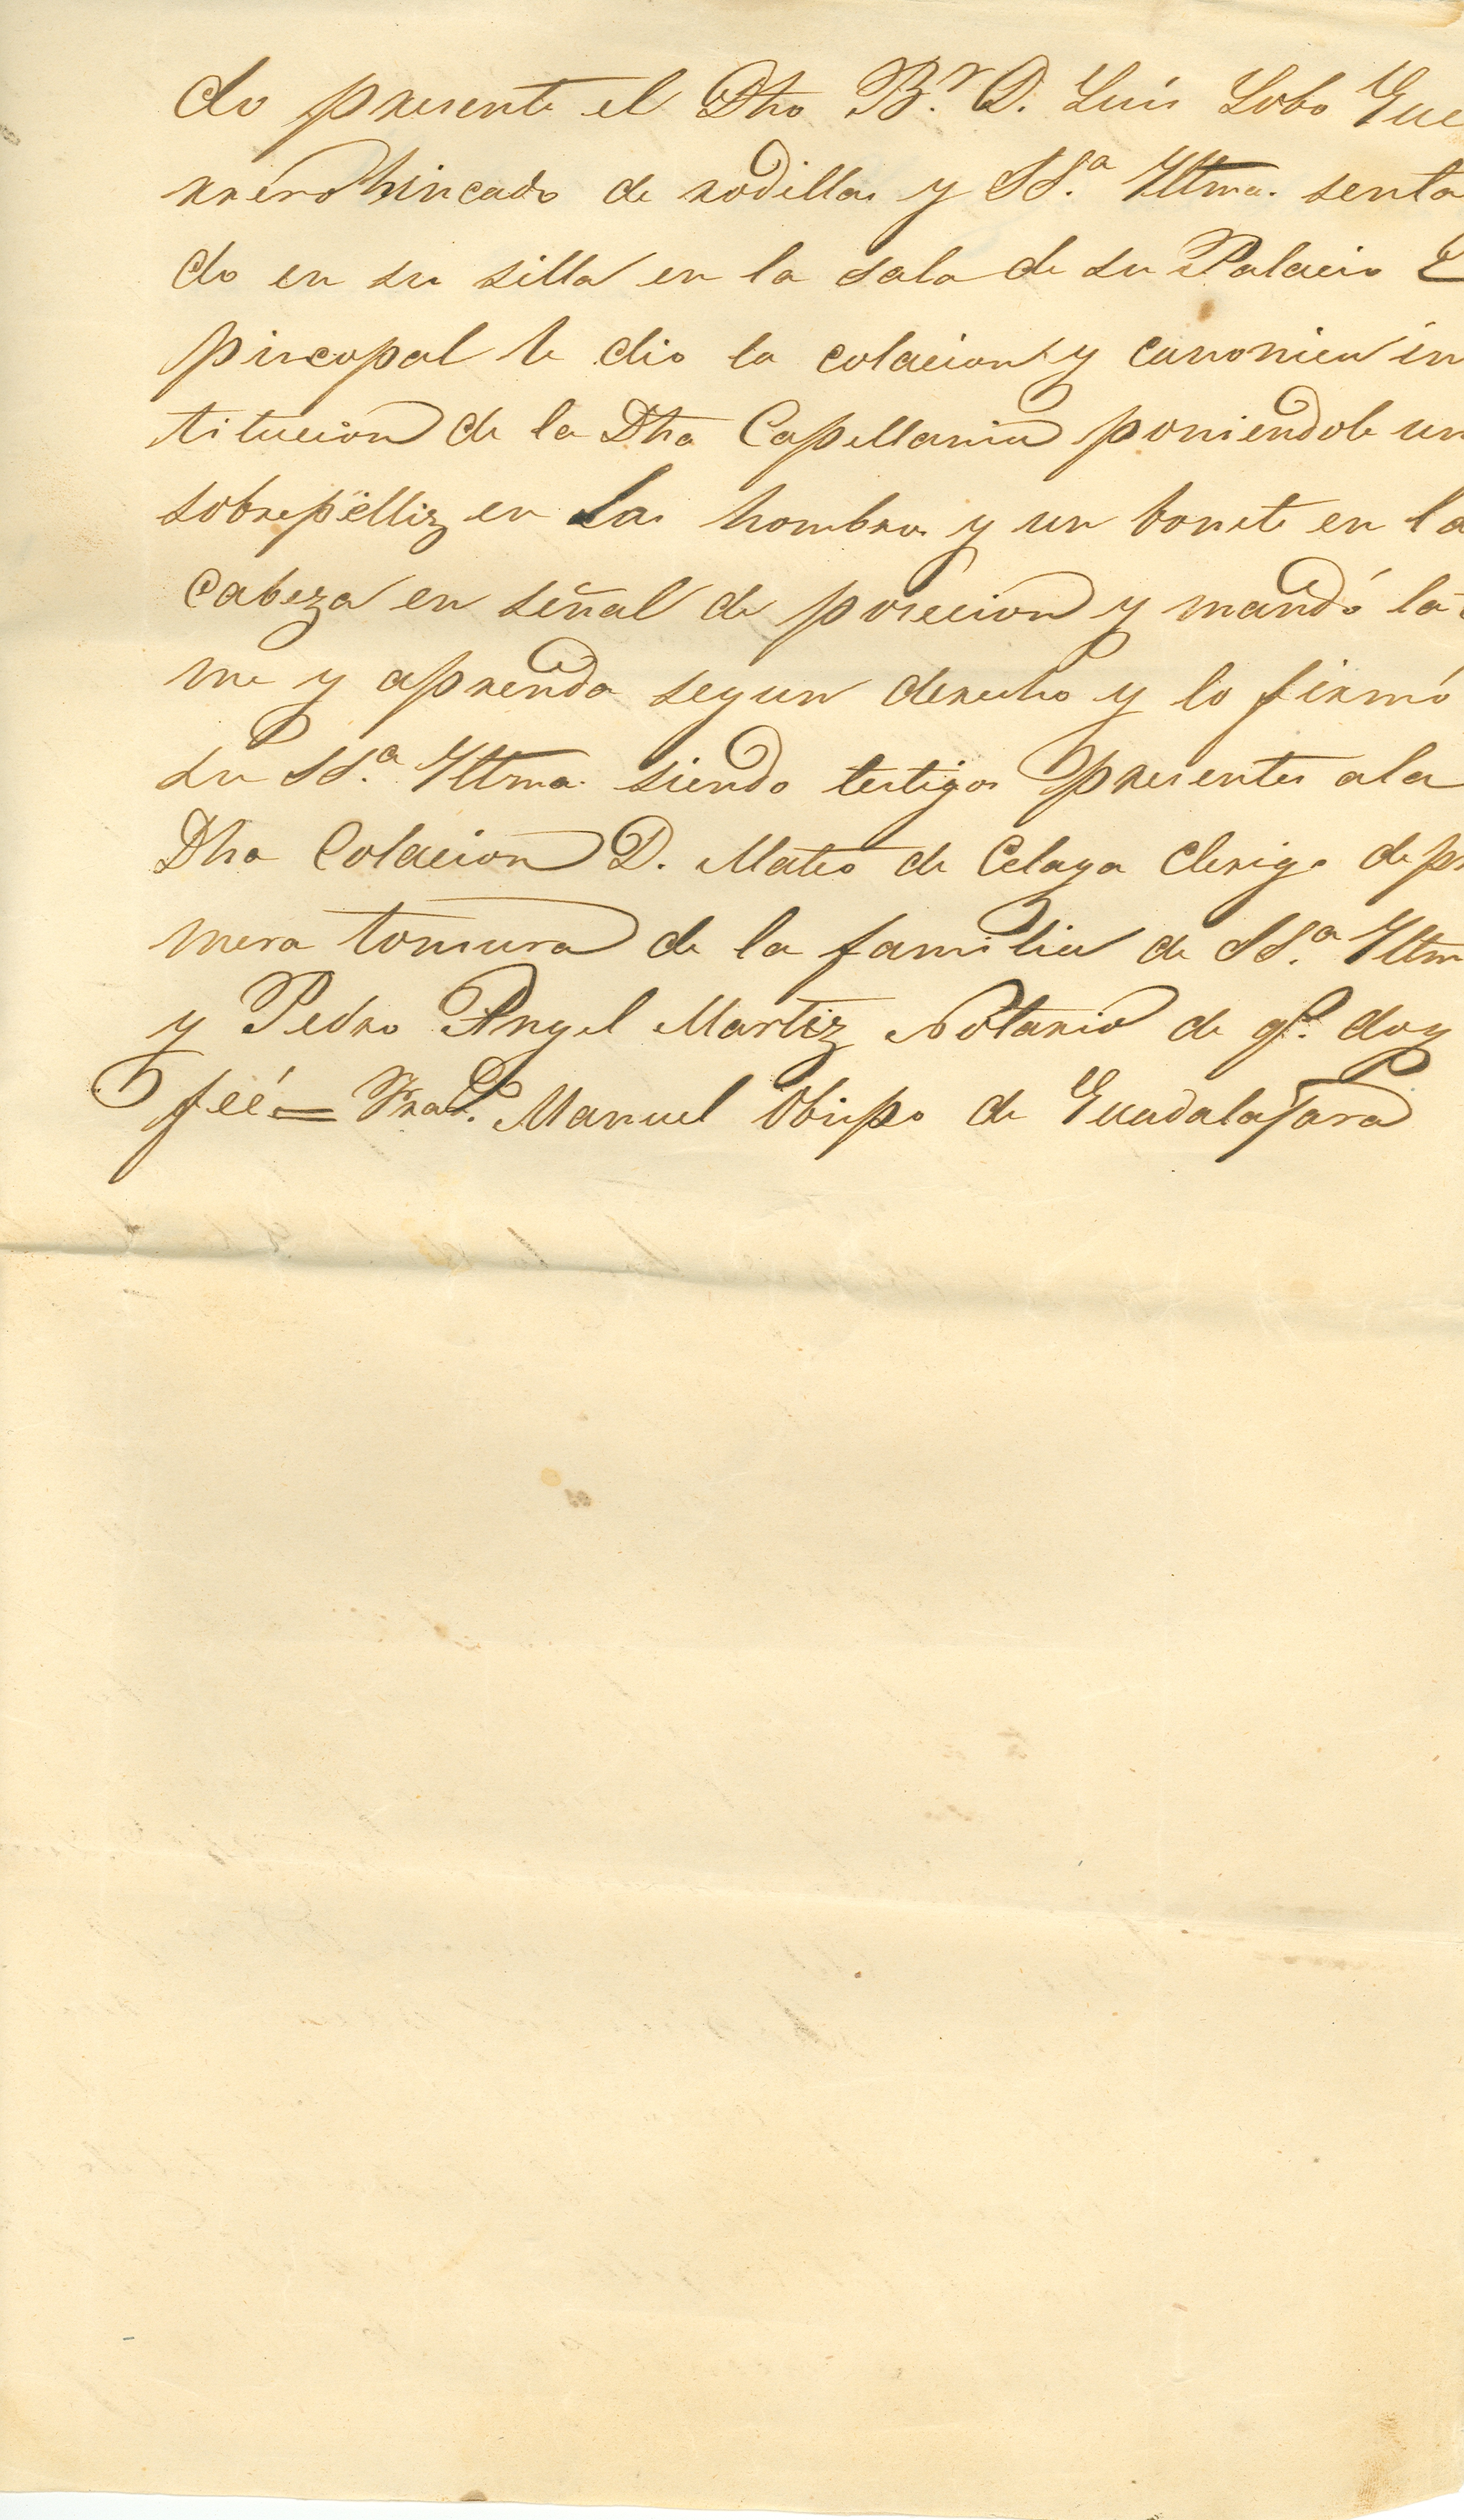 do presente el Dho B.r D. Luis Lobo Gue
rrero hincado de rodillas y SS.a Yltma. senta
do en su silla en la sala de su Palacio E
piscopal le dio la colacion y canonica in
titucion de la Dha Capellania poniendole un
sobrepelliz en Las hombros y un bonete en la
cabeza en señal de posecion y mandó la to
me y aprenda segun derecho y lo firmó
su SS.a Yltma. siendo testigos presentes a la
Dha Colacion D. Mateo de Celaya Clerigo de pr
mera tonsura de la familia de SS.a Yltm
y Pedro Angel Martiz Notario de q.e doy
feé = Manuel Obispo de Guadalajara